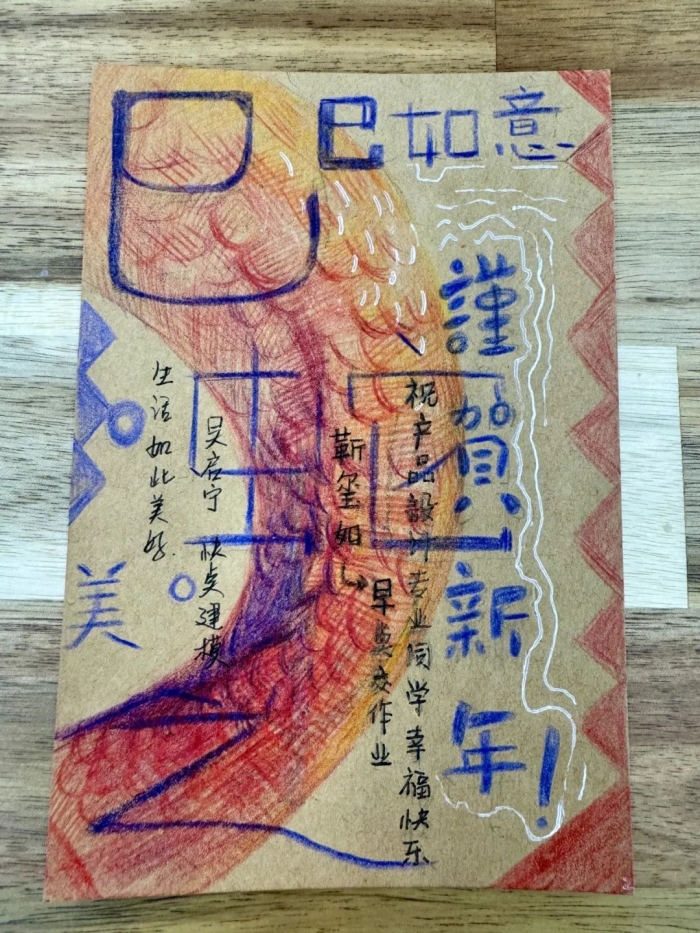 巳
巳如意
謹賀新年！
祝产品設计专业同学幸福快乐
靳玺如
早點交作业
吴启宁 快点建模
生活如此美好.
美